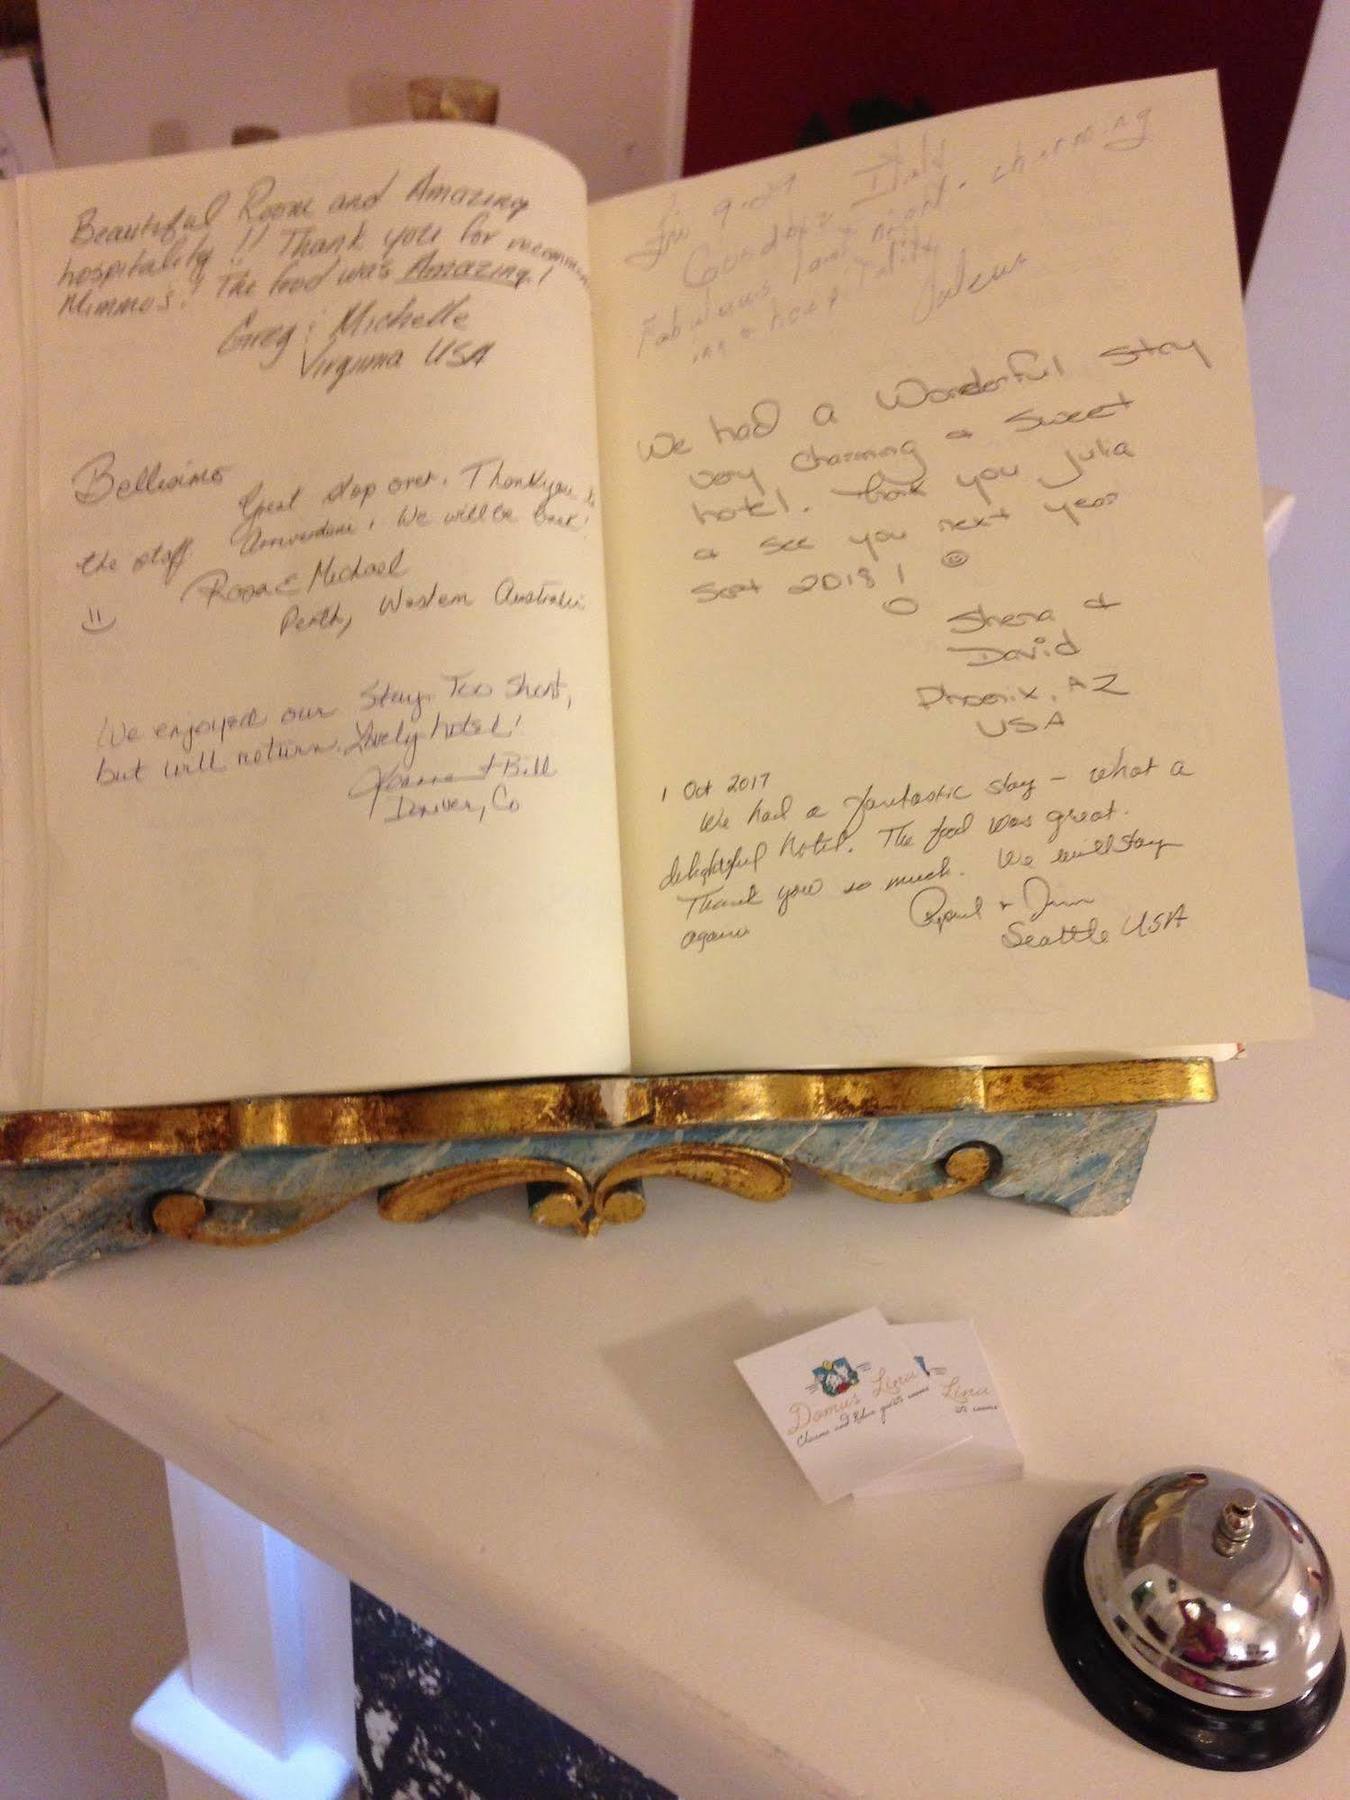 Beautiful Room and Amazing
hospitality!! Thank you for
Mimmos! The food was Amazing!
Greg & Michelle
Virginia USA
Bellisimo
Great stop over. Thankyou to
the staff. We will be back!
Rosa & Michael
Perth, Western Australia
We enjoyed our Stay. Too Short,
but will return. Lovely hotel!
+ Bill
Denver, Co
Fri 9-29
Goodbye
Fabulous last night. charming
We had a Wonderful stay
very charming & Sweet
hotel. Thank you Julia
& see you next year
Sept 2018!
Shena &
David
Phoenix, AZ
USA
1 Oct 2017
We had a fantastic stay - what a
delightful hotel. The food was great.
Thank you so much. We will stay
again
Seattle USA
Domus Lina
Lina